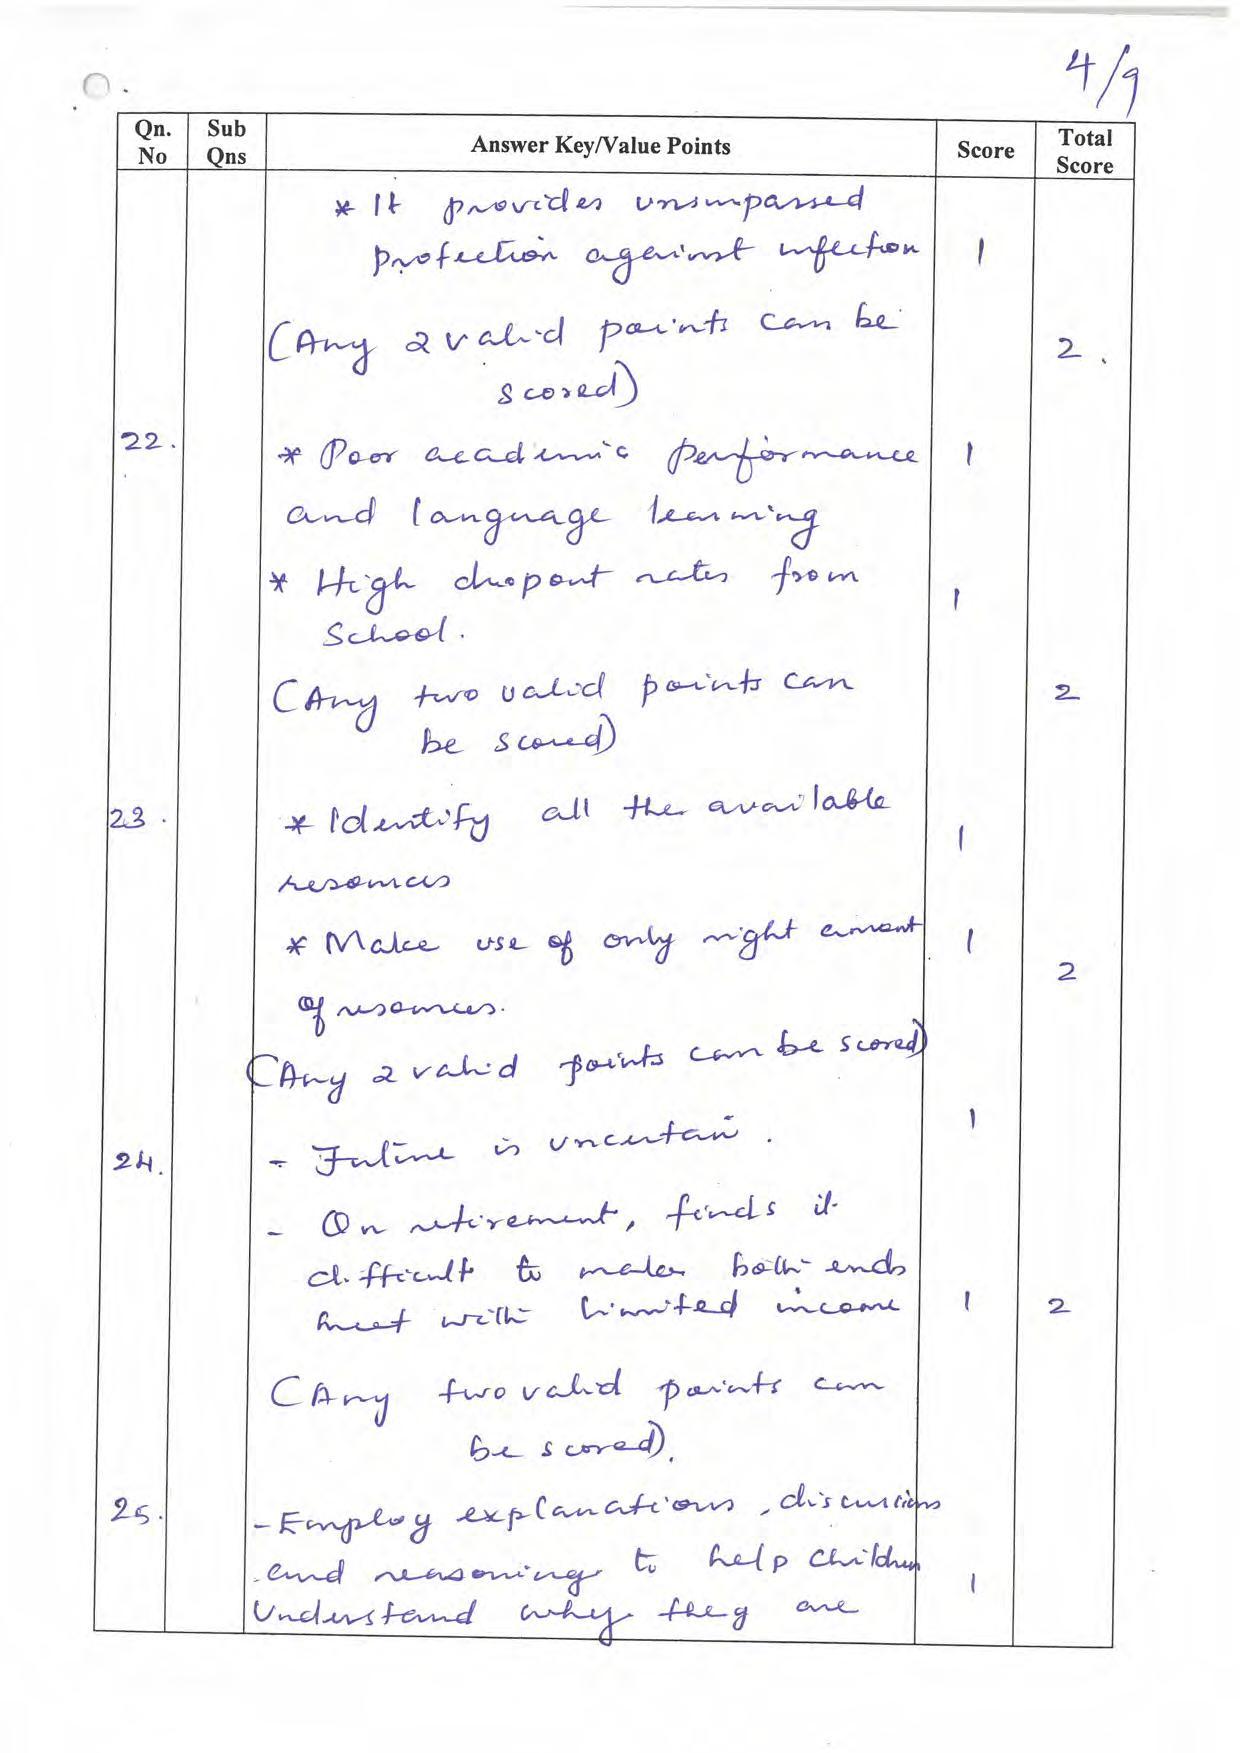 4/9
Qn. No | Sub Qns | Answer Key/Value Points | Score | Total Score
* It provides unsurpassed
protection against infection 1
(Any 2 valid points can be 2.
scored)
22. * Poor academic performance 1
and language learning
* High dropout rates from 1
School.
(Any two valid points can 2
be scored)
23. * Identify all the available 1
resources
* Make use of only right amount 1
of resources. 2
(Any 2 valid points can be scored)
24. - Future is uncertain. 1
- On retirement, finds it
difficult to make both ends
meet with limited income 1 2
(Any two valid points can
be scored).
25. - Employ explanations, discussions
and reasoning to help children 1
Understand why they are